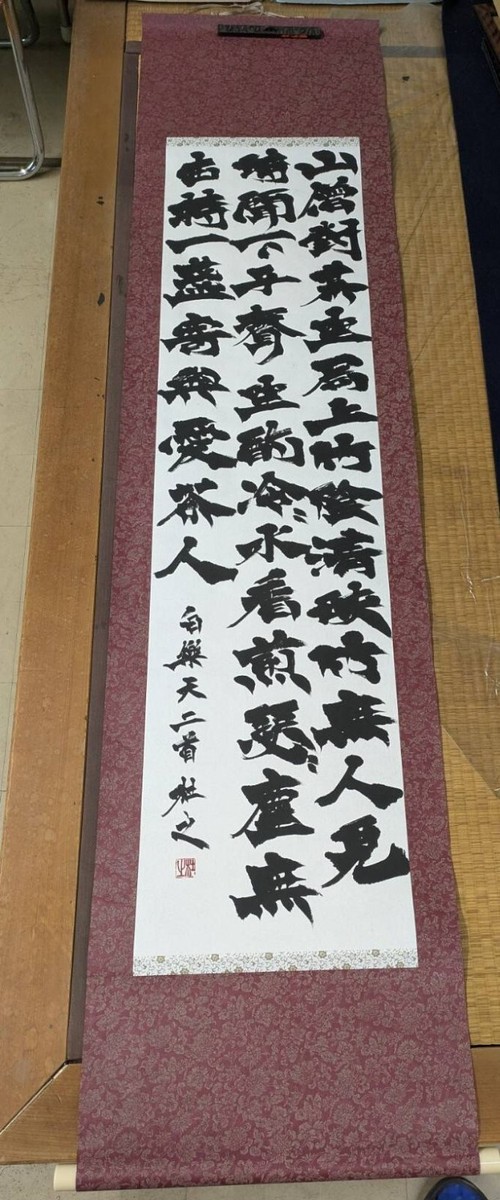 山僧對棊坐局上竹陰清映竹無人見
時聞下子聲坐酌冷〻水看煎瑟〻塵無
由持一盞寄與愛茶人
白樂天二首 桂之